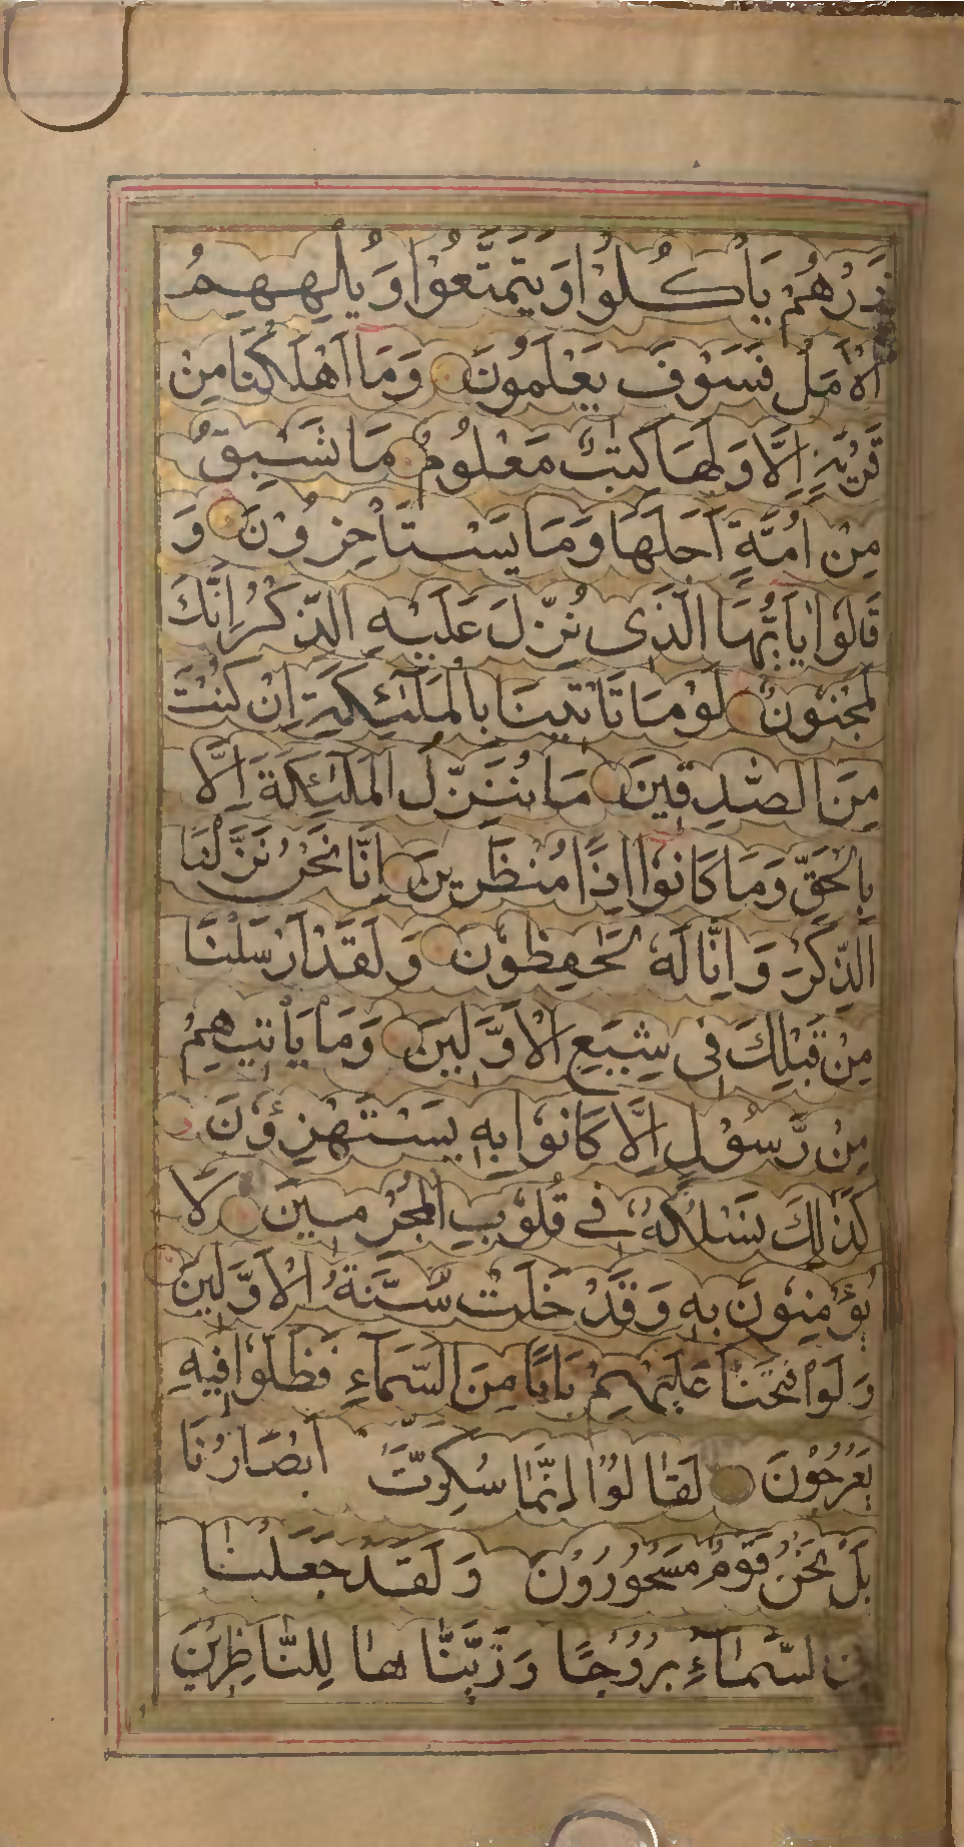 ذَرْهُمْ يَأْكُلُوْا وَيَتَمَتَّعُوْا وَيُلْهِهِمُ
الْاَمَلُ فَسَوْفَ يَعْلَمُونَ وَمَا اَهْلَكْنَا مِنْ
قَرْيَةٍ اِلَّا وَلَهَا كِتٰبٌ مَعْلُومٌ مَا تَسْبِقُ
مِنْ اُمَّةٍ اَجَلَهَا وَمَا يَسْتَأْخِرُوْنَ وَ
قَالُوْا يٰاَيُّهَا الَّذِى نُزِّلَ عَلَيْهِ الذِّكْرُ اِنَّكَ
لَمَجْنُونٌ لَوْ مَا تَأْتِيْنَا بِالْمَلٰٓئِكَةِ اِنْ كُنْتَ
مِنَ الصّٰدِقِينَ مَا نُنَزِّلُ الْمَلٰٓئِكَةَ اِلَّا
بِالْحَقِّ وَمَا كَانُوْا اِذًا مُنْظَرِينَ اِنَّا نَحْنُ نَزَّلْنَا
الذِّكْرَ وَاِنَّا لَهُ لَحٰفِظُونَ وَلَقَدْ اَرْسَلْنَا
مِنْ قَبْلِكَ فِى شِيَعِ الْاَوَّلِينَ وَمَا يَأْتِيهِمْ
مِنْ رَّسُوْلٍ اِلَّا كَانُوْا بِهِ يَسْتَهْزِؤُنَ
كَذٰلِكَ نَسْلُكُهُ فِے قُلُوْبِ الْمُجْرِمِينَ لَا
يُؤْمِنُوْنَ بِهِ وَقَدْ خَلَتْ سُنَّةُ الْاَوَّلِينَ
وَلَوْ فَتَحْنَا عَلَيْهِمْ بَابًا مِنَ السَّمَآءِ فَظَلُّوْا فِيهِ
يَعْرُجُوْنَ لَقَالُوْا اِنَّمَا سُكِّرَتْ اَبْصَارُنَا
بَلْ نَحْنُ قَوْمٌ مَسْحُورُوْنَ وَلَقَدْ جَعَلْنَا
السَّمَآءِ بُرُوْجًا وَزَيَّنَّاهَا لِلنَّاظِرِيْنَ